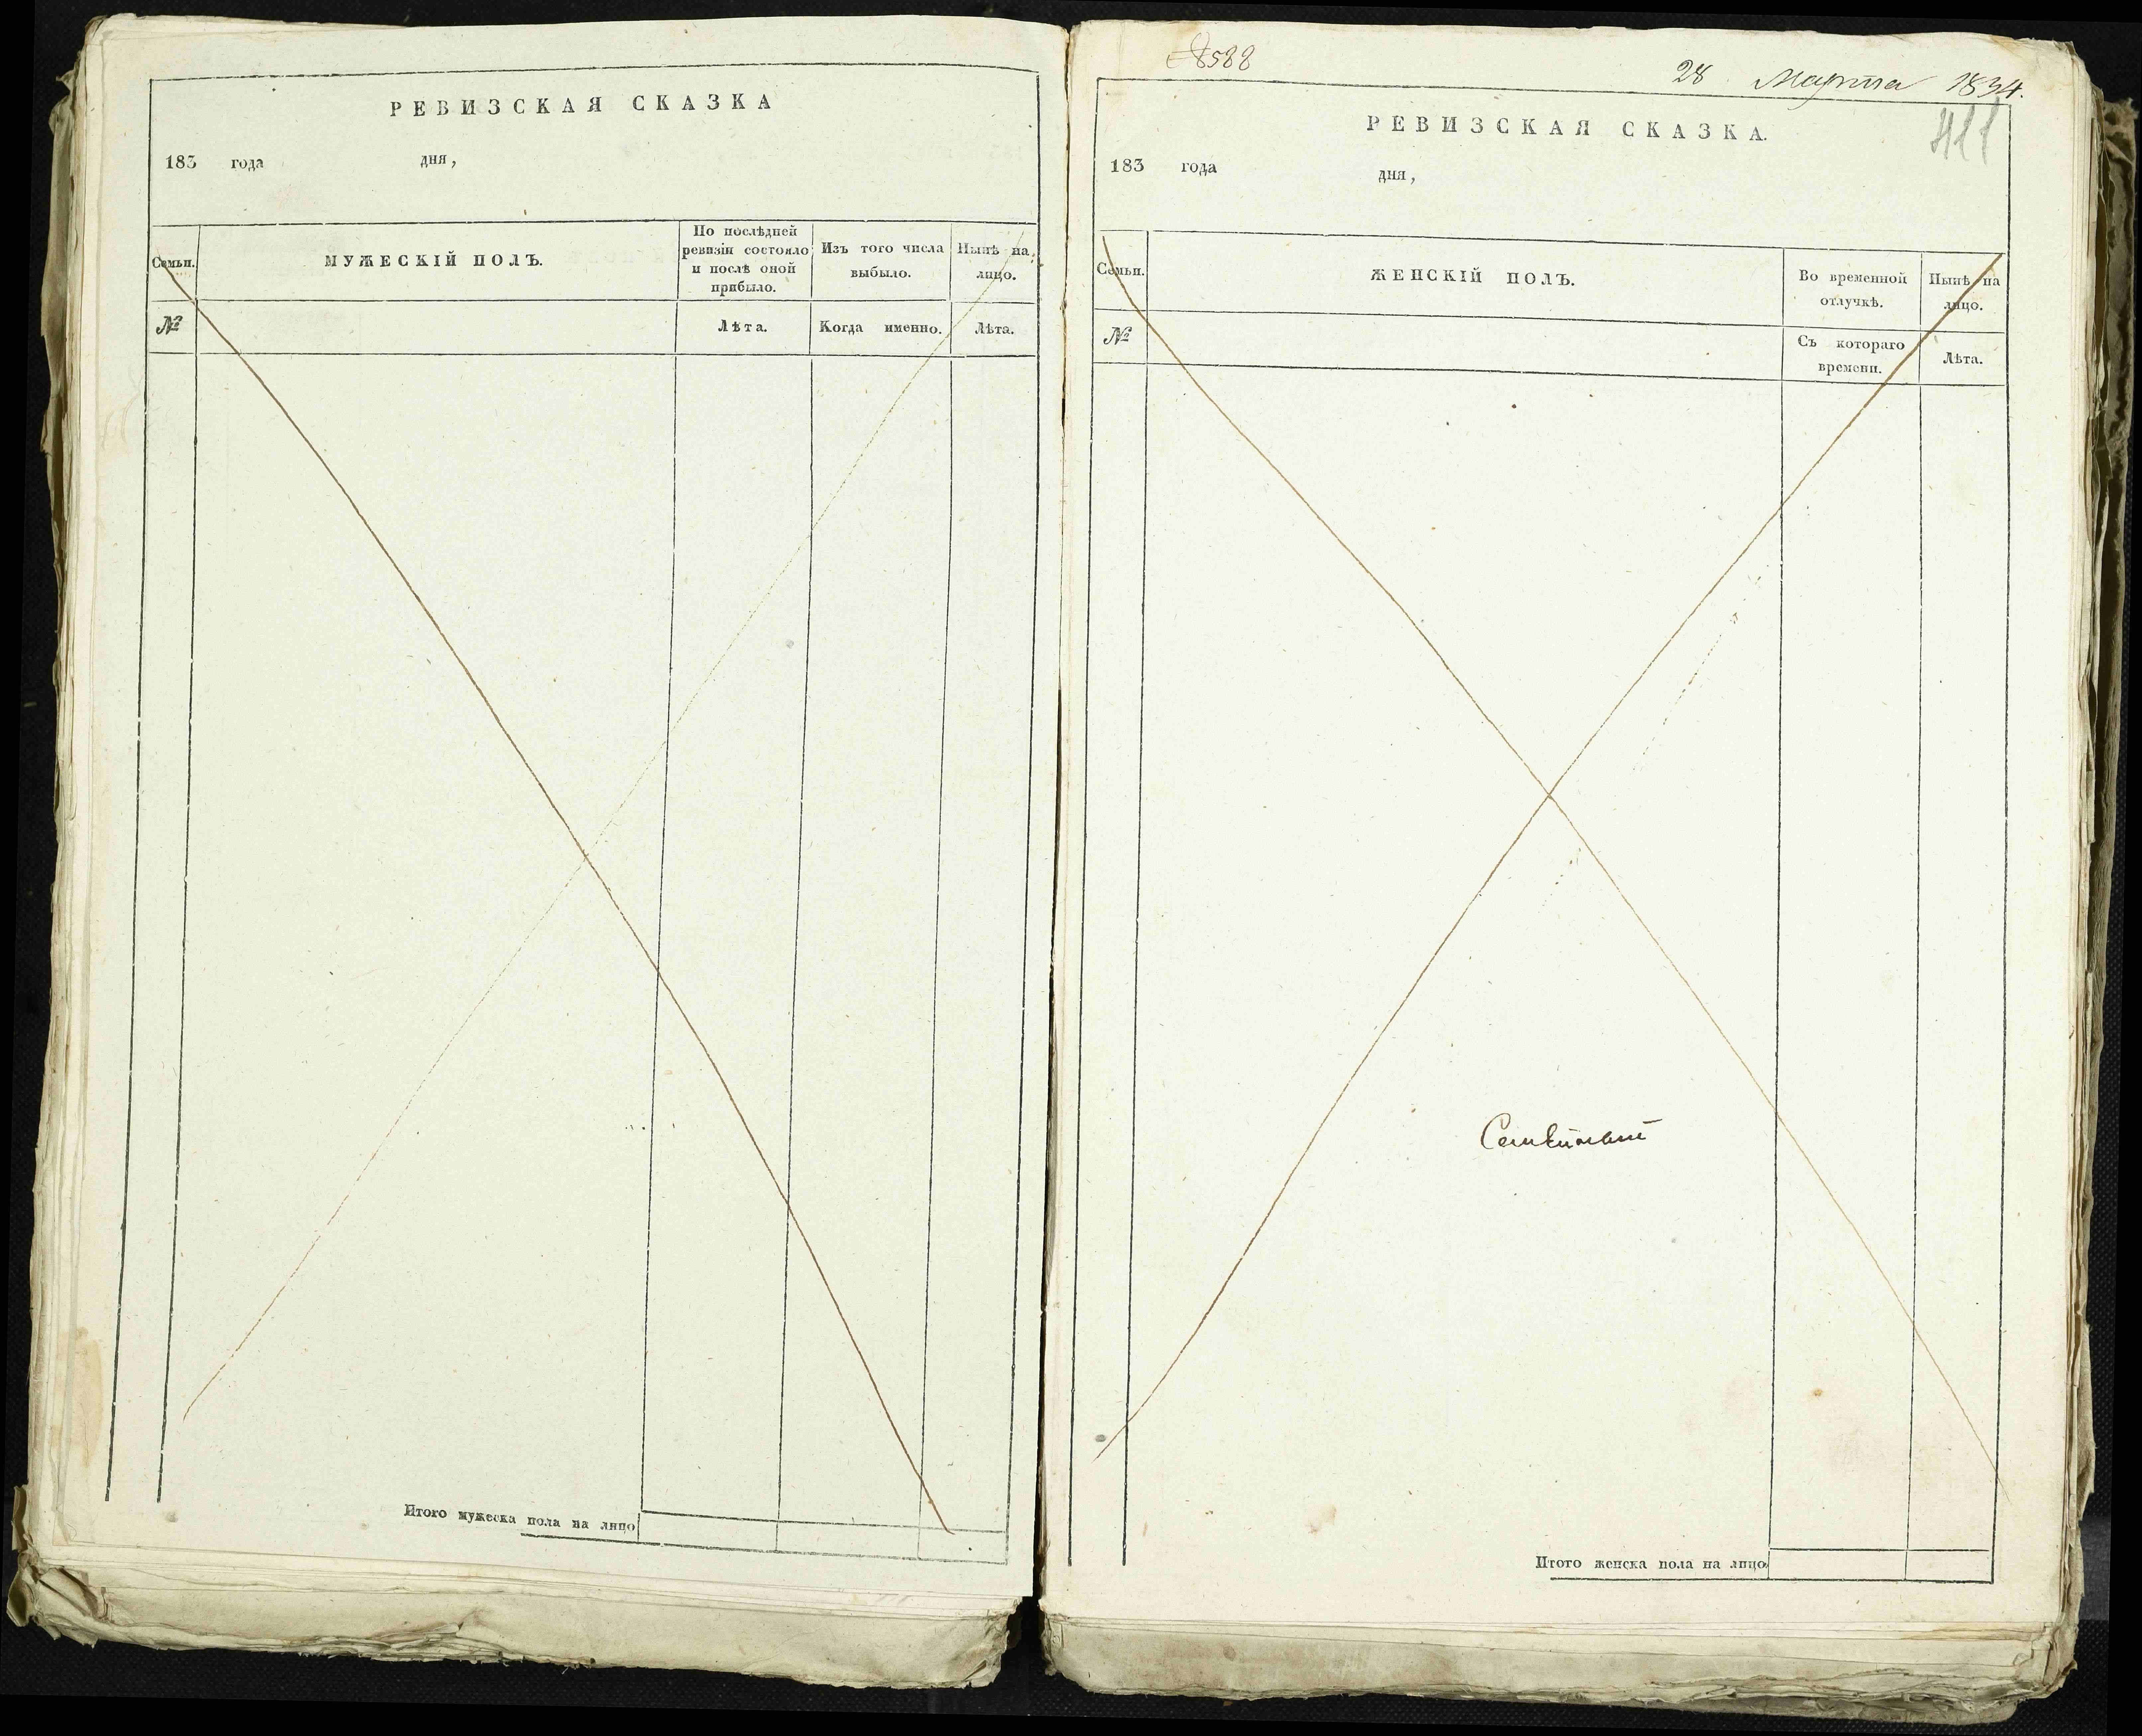 РЕВИЗСКАЯ СКАЗКА
183 года дня,
Семьи.
МУЖЕСКІЙ ПОЛЪ.
По послѣдней
ревизіи состояло
и послѣ оной
прибыло.
Изъ того числа
выбыло.
Нынѣ на
лицо.
№
Лѣта.
Когда именно.
Лѣта.
Итого мужеска пола на лицо
8588
28 Марта 1834.
411
РЕВИЗСКАЯ СКАЗКА.
183 года дня,
Семьи.
ЖЕНСКІЙ ПОЛЪ.
Во временной
отлучкѣ.
Нынѣ на
лицо.
№
Съ котораго
времени.
Лѣта.
Итого женска пола на лицо